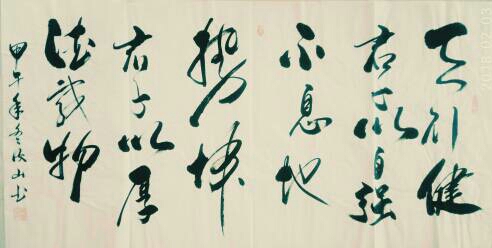 天行健
君子以自强
不息地
势坤
君子以厚
德载物
甲午年冬山书
2018-02-03